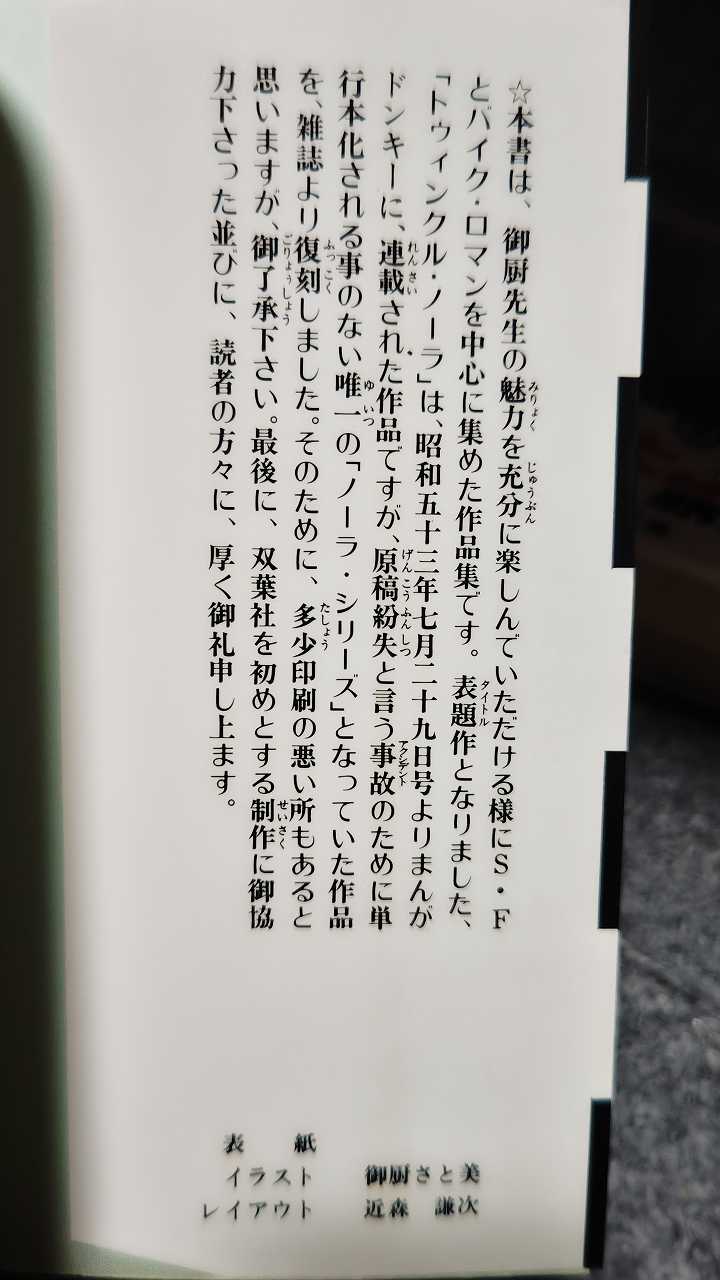 ☆本書は、御厨先生の魅力を充分に楽しんでいただける様にS・F
とバイク・ロマンを中心に集めた作品集です。表題作となりました、
「トゥィンクル・ノーラ」は、昭和五十三年七月二十九日号よりまんが
ドンキーに、連載された作品ですが、原稿紛失と言う事故のために単
行本化される事のない唯一の「ノーラ・シリーズ」となっていた作品
を、雑誌より復刻しました。そのために、多少印刷の悪い所もあると
思いますが、御了承下さい。最後に、双葉社を初めとする制作に御協
力下さった並びに、読者の方々に、厚く御礼申し上ます。
表紙
イラスト 御厨さと美
レイアウト 近森 謙次